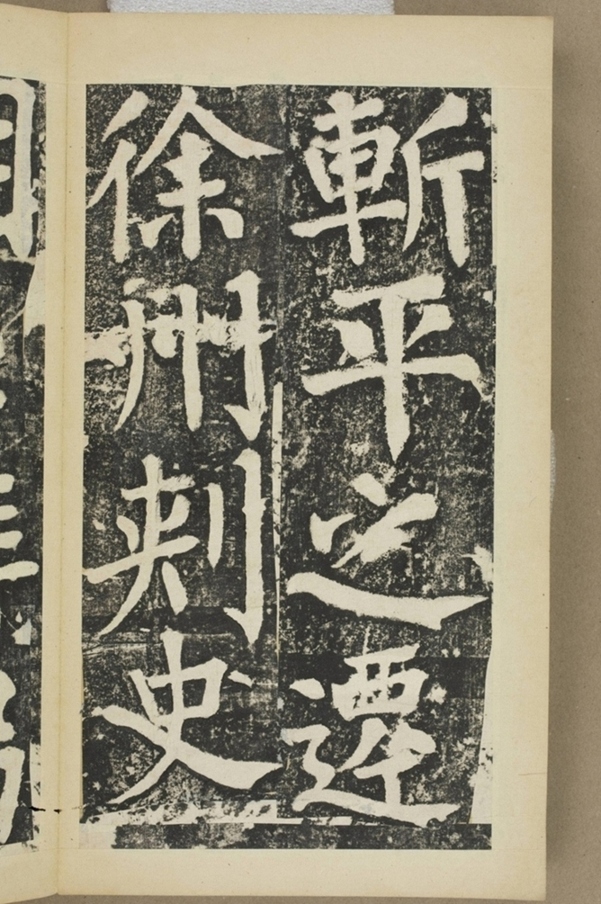 斬平之遷
徐州刾史